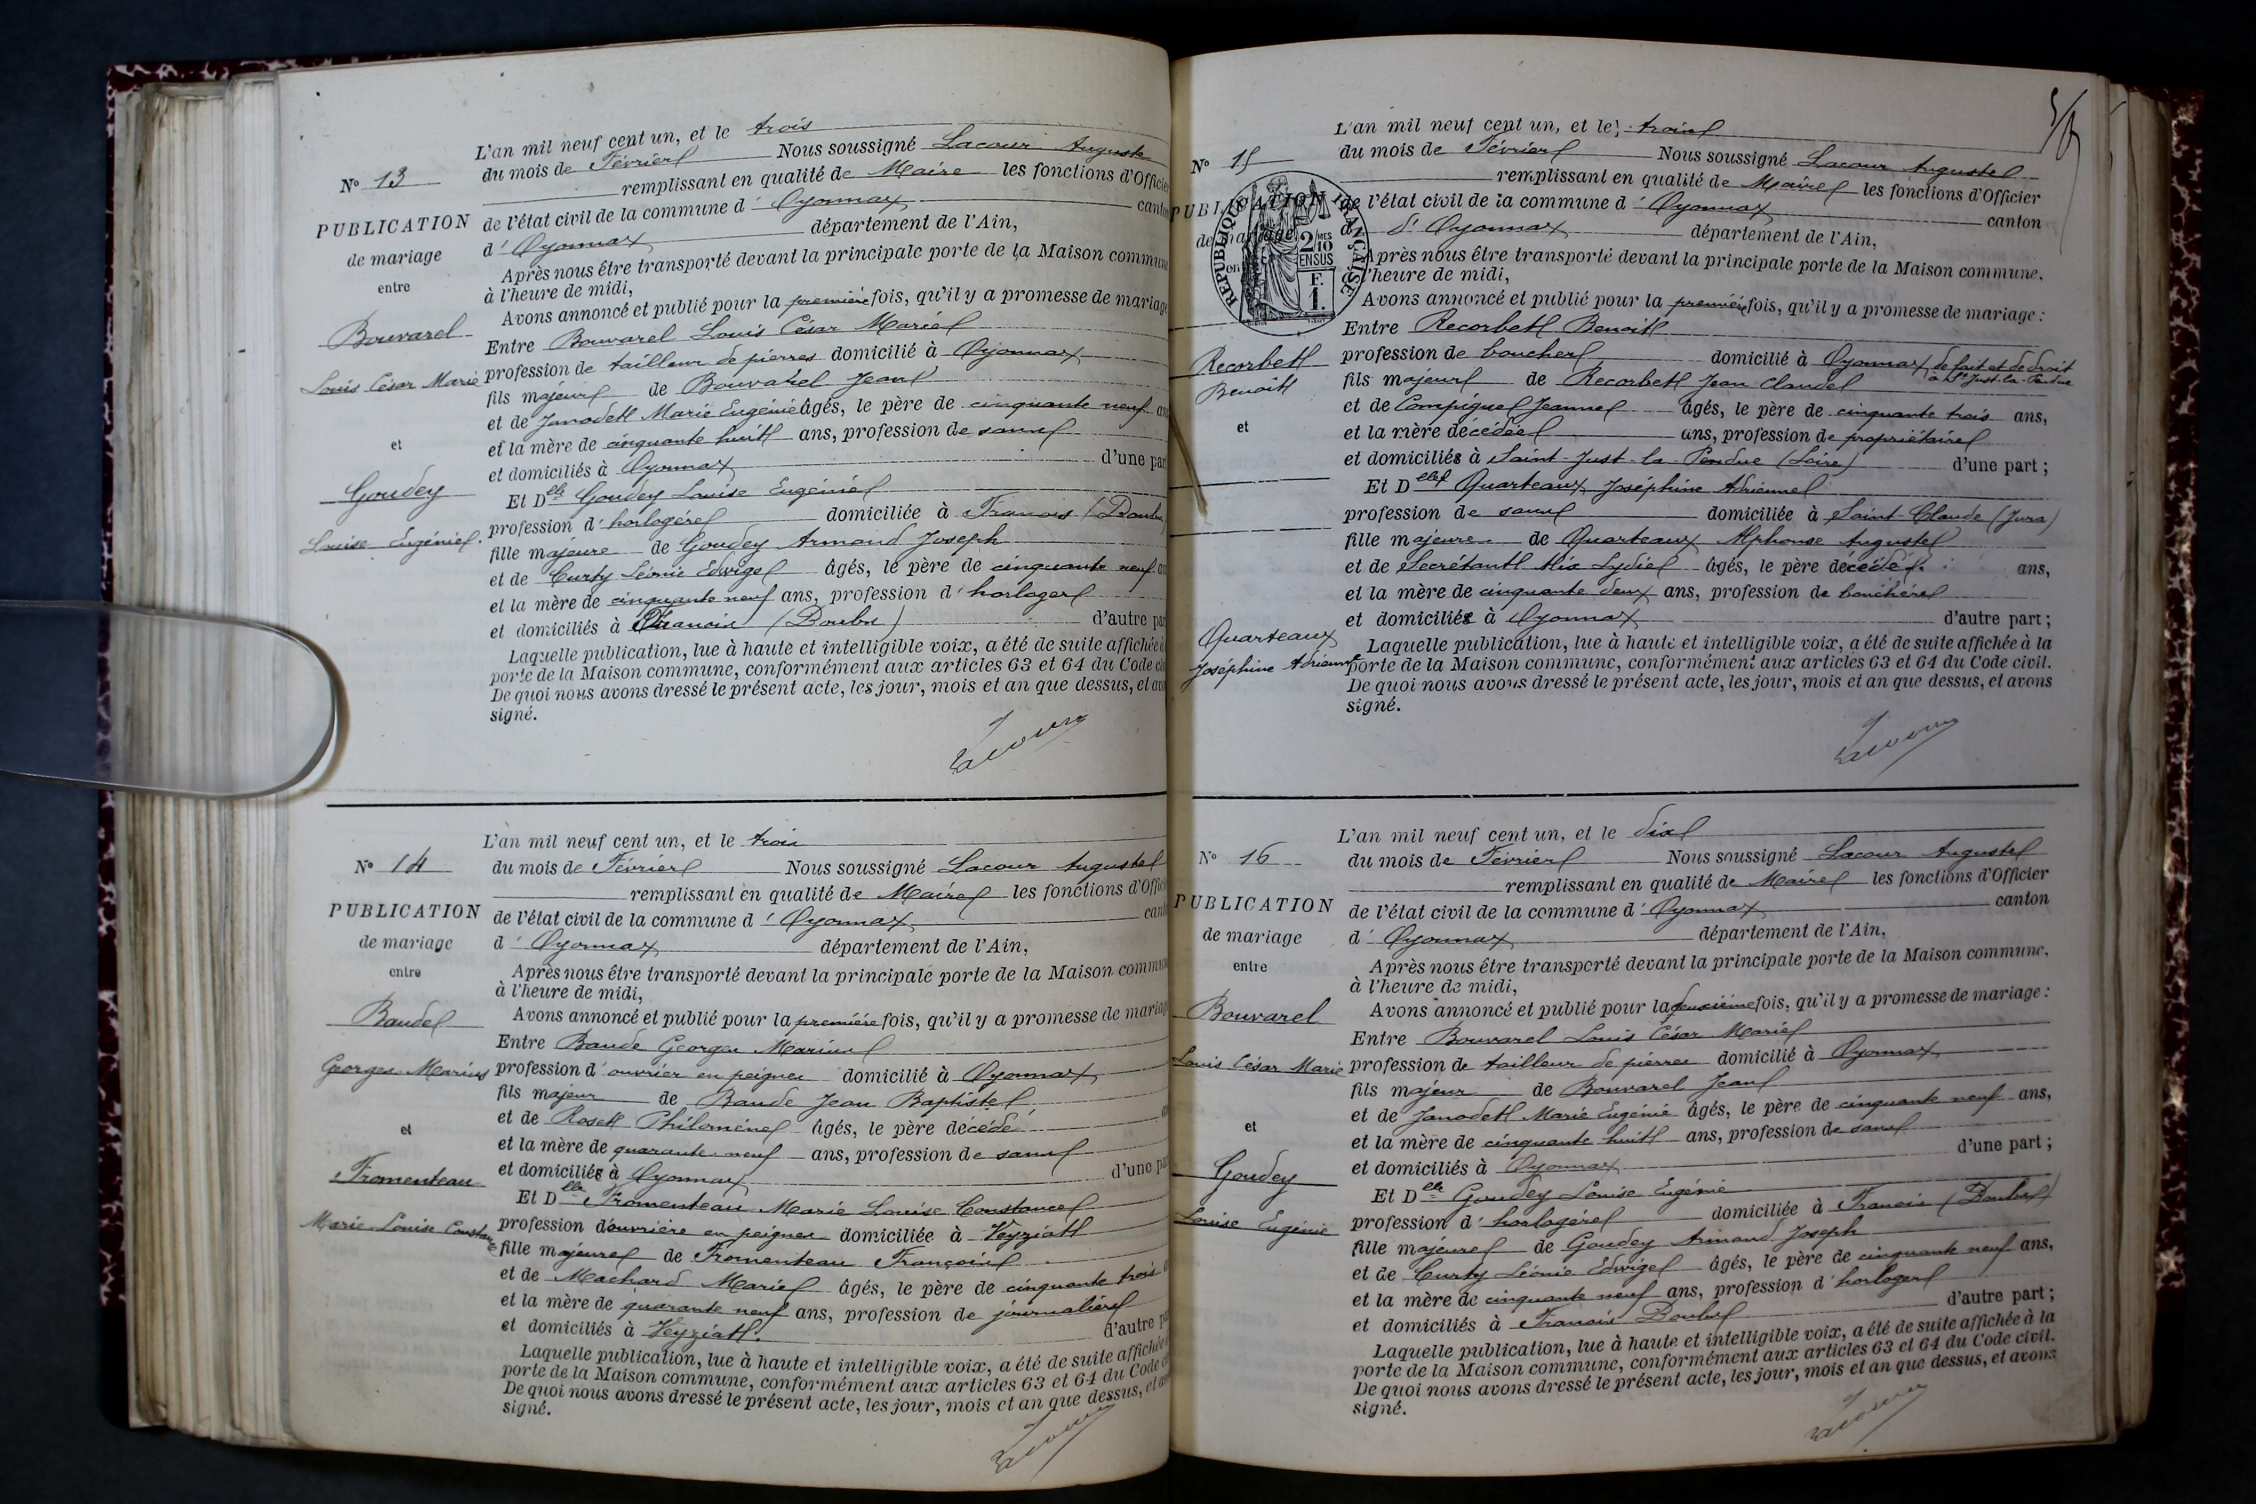 L'an mil neuf cent un, et le trois
Nº 13
du mois de Février Nous soussigné Lacour Auguste
remplissant en qualité de Maire les fonctions d'Officier
PUBLICATION
de mariage
entre
de l'état civil de la commune d' Oyonnax canton
d' Oyonnax département de l'Ain,
Après nous être transporté devant la principale porte de la Maison commune
à l'heure de midi,
Avons annoncé et publié pour la première fois, qu'il y a promesse de mariage
Bouvarel
Louis César Marie
et
Goudey
Louise Eugénie.
Entre Bouvarel Louis César Marie
profession de tailleur de pierres domicilié à Oyonnax
fils majeur de Bouvarel Jean
et de Janodet Marie Eugénie âgés, le père de cinquante neuf ans
et la mère de cinquante huit ans, profession de sans
et domiciliés à Oyonnax d'une part
Et Delle Goudey Louise Eugénie
profession d' horlogère domiciliée à Franois (Doubs)
fille majeure de Goudey Armand Joseph
et de Curty Léonie Edwige âgés, le père de cinquante neuf ans
et la mère de cinquante neuf ans, profession d' horloger
et domiciliés à Franois (Doubs) d'autre part
Laquelle publication, lue à haute et intelligible voix, a été de suite affichée à
porte de la Maison commune, conformément aux articles 63 et 64 du Code civ
De quoi nous avons dressé le présent acte, les jour, mois et an que dessus, et avo
signé.
Lacour
L'an mil neuf cent un, et le trois
Nº 14
du mois de Février Nous soussigné Lacour Auguste
remplissant en qualité de Maire les fonctions d'Offici
PUBLICATION
de mariage
entre
de l'état civil de la commune d' Oyonnax cant
d' Oyonnax département de l'Ain,
Après nous être transporté devant la principale porte de la Maison commun
à l'heure de midi,
Avons annoncé et publié pour la première fois, qu'il y a promesse de mariag
Baude
Georges Marius
et
Fromenteau
Marie Louise Constance
Entre Baude Georges Marius
profession d' ouvrier en peignes domicilié à Oyonnax
fils majeur de Baude Jean Baptiste
et de Roset Philomène âgés, le père décédé
et la mère de quarante neuf ans, profession de sans
et domiciliés à Oyonnax d'une pa
Et Delle Fromenteau Marie Louise Constance
profession d'ouvrière en peignes domiciliée à Veyziat
fille majeure de Fromenteau François
et de Machard Marie âgés, le père de cinquante trois
et la mère de quarante neuf ans, profession de journalière
et domiciliés à Veyziat. d'autre pa
Laquelle publication, lue à haute et intelligible voix, a été de suite affichée
porte de la Maison commune, conformément aux articles 63 et 64 du Code c
De quoi nous avons dressé le présent acte, les jour, mois et an que dessus, et av
signé.
Lacour
L'an mil neuf cent un, et le trois
Nº 15
du mois de Février Nous soussigné Lacour Auguste
remplissant en qualité de Maire les fonctions d'Officier
PUBLICATION
de mariage
en
RÉPUBLIQUE FRANÇAISE
2/10 MES
EN SUS
F.
1.
de l'état civil de la commune d' Oyonnax canton
d' Oyonnax département de l'Ain,
Après nous être transporté devant la principale porte de la Maison commune.
l'heure de midi,
Avons annoncé et publié pour la première fois, qu'il y a promesse de mariage :
Recorbet
Benoit
et
Quarteaux
Joséphine Adrienne
Entre Recorbet Benoit
profession de boucher domicilié à Oyonnax de fait et de droit
à St Just-la-Pendue
fils majeur de Recorbet Jean Claude
et de Compigne Jeanne âgés, le père de cinquante trois ans,
et la mère décédée ans, profession de propriétaire
et domiciliés à Saint-Just-la-Pendue (Loire) d'une part ;
Et Delle Quarteaux Joséphine Adrienne
profession de sans domiciliée à Saint-Claude (Jura)
fille majeure de Quarteaux Alphonse Auguste
et de Secrétant Alix Lydie âgés, le père décédé ans,
et la mère de cinquante deux ans, profession de bouchère
et domiciliés à Oyonnax d'autre part ;
Laquelle publication, lue à haute et intelligible voix, a été de suite affichée à la
porte de la Maison commune, conformément aux articles 63 et 64 du Code civil.
De quoi nous avons dressé le présent acte, les jour, mois et an que dessus, et avons
signé.
Lacour
L'an mil neuf cent un, et le dix
Nº 16
du mois de Février Nous soussigné Lacour Auguste
remplissant en qualité de Maire les fonctions d'Officier
PUBLICATION
de mariage
entre
de l'état civil de la commune d' Oyonnax canton
d' Oyonnax département de l'Ain,
Après nous être transporté devant la principale porte de la Maison commune.
à l'heure de midi,
Avons annoncé et publié pour la deuxième fois, qu'il y a promesse de mariage :
Bouvarel
Louis César Marie
et
Goudey
Louise Eugénie
Entre Bouvarel Louis César Marie
profession de tailleur de pierres domicilié à Oyonnax
fils majeur de Bouvarel Jean
et de Janodet Marie Eugénie âgés, le père de cinquante neuf ans,
et la mère de cinquante huit ans, profession de sans
et domiciliés à Oyonnax d'une part ;
Et Delle Goudey Louise Eugénie
profession d' horlogère domiciliée à Franois (Doubs)
fille majeure de Goudey Armand Joseph
et de Curty Léonie Edwige âgés, le père de cinquante neuf ans,
et la mère de cinquante neuf ans, profession d' horloger
et domiciliés à Franois Doubs d'autre part ;
Laquelle publication, lue à haute et intelligible voix, a été de suite affichée à la
porte de la Maison commune, conformément aux articles 63 et 64 du Code civil.
De quoi nous avons dressé le présent acte, les jour, mois et an que dessus, et avons
signé.
Lacour